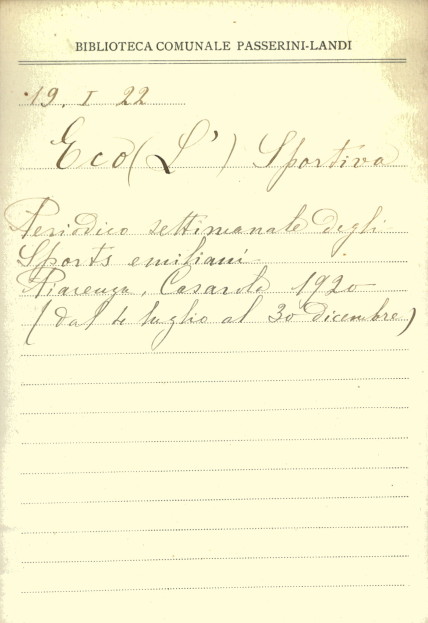 BIBLIOTECA COMUNALE PASSERINI-LANDI
19. I 22
Eco (L') Sportiva
Periodico settimanale degli
Sports emiliani
Piacenza, Casarola 1920
(dal 4 luglio al 30 dicembre)